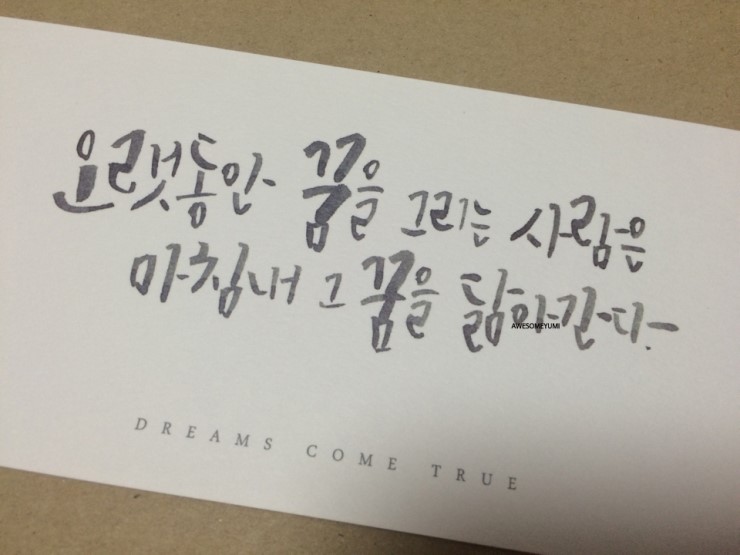 오랫동안 꿈을 그리는 사람은
마침내 그 꿈을 닮아간다.
AWESOMEYUMI
DREAMS COME TRUE